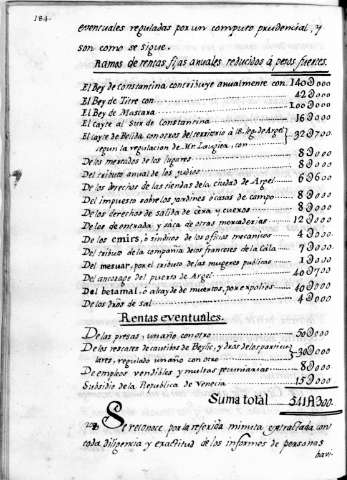 184.
eventuales reguladas por un computo prudencial, y
son como se sigue.
Ramos de rentas fijas anuales reducidos à pesos fuertes.
El Bey de Constantina contribuye anualmente con 140@000
El Bey de Titre con 42@000
El Bey de Mascara 100@000
El Cayte al Sur de Constantina 16@000
El Cayte de Belida con otros del territorio à 18. leg. de Argel
segun la regulacion de Mr. Laugier, con 32@700.
De los mercados de los lugares 8@000
Del tributo anual de los judios 8@000
De los derechos de las tiendas de la ciudad de Argel 6@600
Del impuesto sobre los jardines ò casas de campo 8@000
De los derechos de salida de cera y cueros 8@000
De los de entrada y saca de otras mercaderias 12@000
De los emirs, ò sindicos de los oficios mecanicos 4@000
Del tributo de la compañia de los franceses de la Cala 7@000
Del mesuar, por el tributo de las mugeres publicas 1@000
Del ancorage del puerto de Argel 40@700
Del betamal, ò alcayde de muertos, por expolios 40@000
De los dros de sal 4@000
Rentas eventuales.
De las presas, un año con otro 50@000
De los rescates de cautibos de Beylic, y dros de los particu-
lares, regulado un año con otro 30@000
De empleos vendibles y multas pecuniarias 8@000
Subsidio de la Republica de Venecia 15@000
Suma total 541@300.
Se reconoce por la referida minuta extractada con
toda diligencia y exactitud de los informes de personas